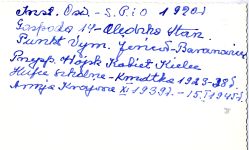 Inst. Ośw. - S.P.i O 1920 r
Gospoda 14 - Olędzko Stan.
Punkt Wym. Jeńców - Baranowicze
Przysp. Wojsk Kobiet Kielce
Hufce szkolne - Komdtka 1923-28 r.
Armja Krajowa XI 1939 r. - 15 I 1945 r.